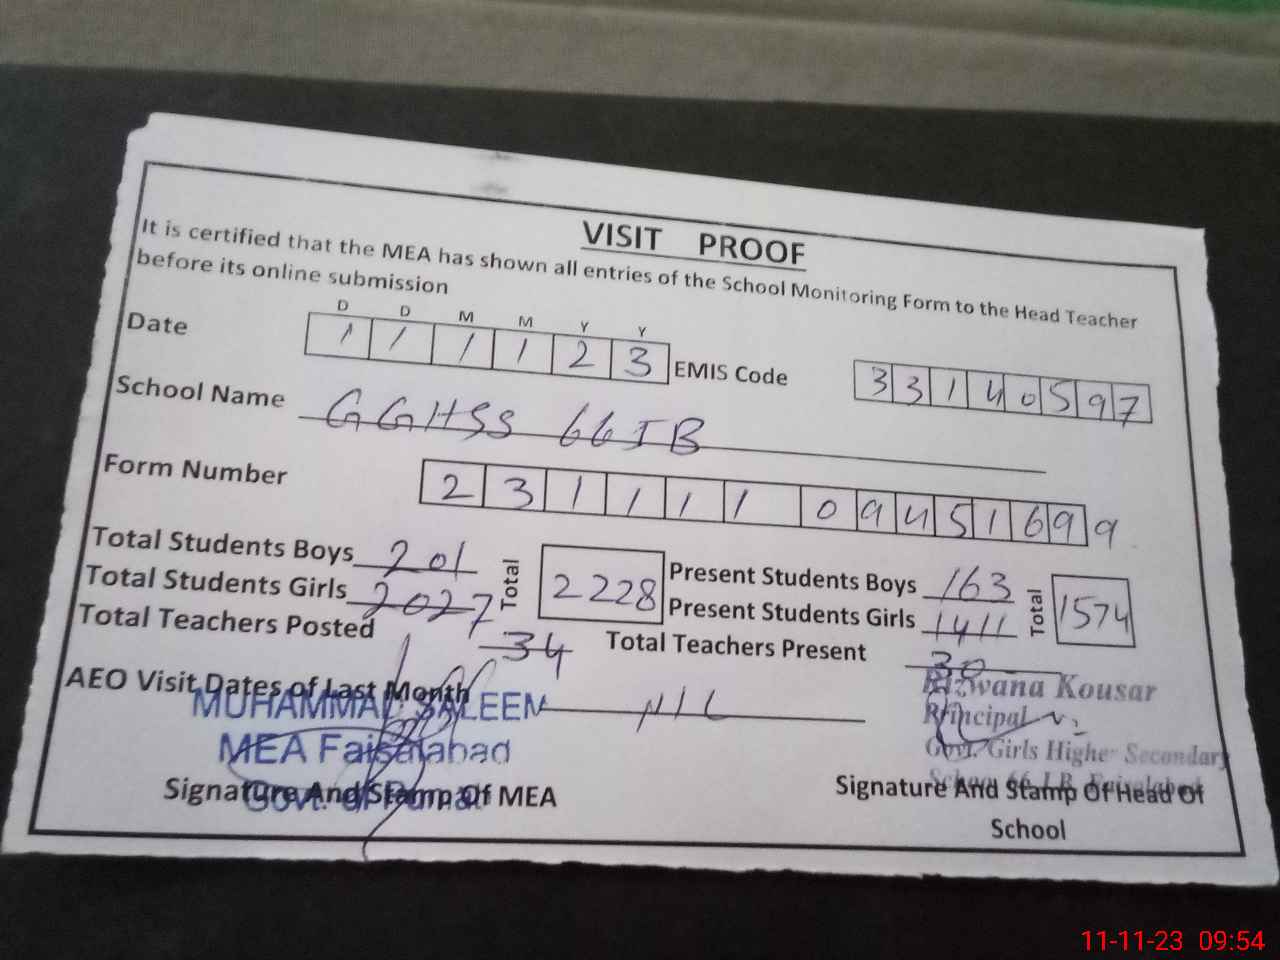 VISIT PROOF
It is certified that the MEA has shown all entries of the School Monitoring Form to the Head Teacher
before its online submission
D D M M Y Y
Date 1 1 1 1 2 3 EMIS Code 3 3 1 4 0 5 9 7
School Name GGHSS 66JB
Form Number 2 3 1 1 1 1 0 9 4 5 1 6 9 9
Total Students Boys 201 Total 2228 Present Students Boys 163 Total 1574
Total Students Girls 2027 Present Students Girls 1411
Total Teachers Posted 34 Total Teachers Present 30
AEO Visit Dates of Last Month NIL
MUHAMMAD SALEEM
MEA Faisalabad
Govt. of Punjab
Signature And Stamp Of MEA
Rizwana Kousar
Principal
Govt. Girls Higher Secondary
School 66 J.B. Faisalabad
Signature And Stamp Of Head Of
School
11-11-23 09:54